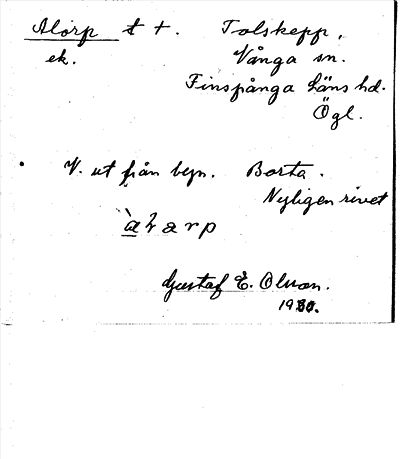 Alorp t +. Tolskepp,
ek. Vånga sn.
Finspånga läns hd.
Ögl.
V. ut från byn. Borta.
Nyligen rivet
Gustaf E. Olson.